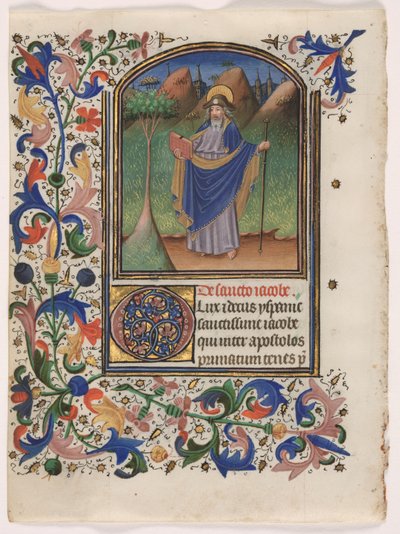 De sancto iacobe.
O Lux et decus yspanie
sanctissime iacobe
qui inter apostolos
primatum tenes p